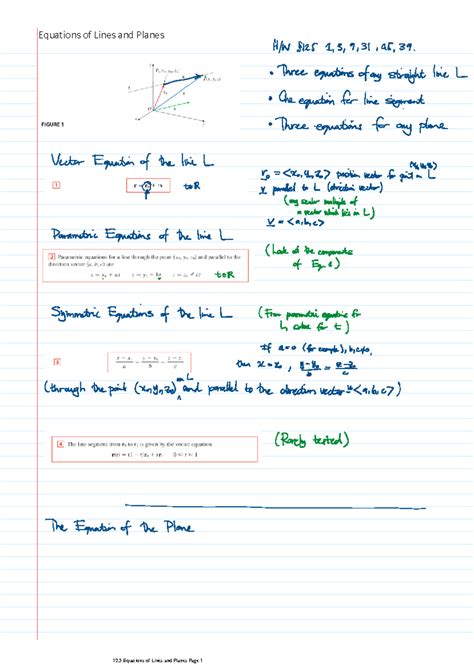 Equations of Lines and Planes
H/W §12.5 1, 5, 7, 31, 45, 39.
• Three equations of any straight line L
• One equation for line segment
• Three equations for any plane
FIGURE 1
Vector Equation of the line L
1 r = r₀ + tv t∈R
r₀ = <x₀, y₀, z₀> position vector for point in L
v parallel to L (direction vector)
(any scalar multiple of
a vector which lies in L)
v = <a, b, c>
Parametric Equations of the line L
(Look at the components
of Eq. 1)
2 Parametric equations for a line through the point (x₀, y₀, z₀) and parallel to the
direction vector (a, b, c) are
x = x₀ + at y = y₀ + bt z = z₀ + ct t∈R
Symmetric Equations of the line L
(From parametric equations for
L, solve for t)
If a=0 (for example), b, c≠0,
3 x − x₀ / a = y − y₀ / b = z − z₀ / c
then x = x₀, y−y₀ / b = z−z₀ / c
(through the point (x₀, y₀, z₀) on L and parallel to the direction vector v <a, b, c>)
4 The line segment from r₀ to r₁ is given by the vector equation
r(t) = (1 − t)r₀ + tr₁ 0 ≤ t ≤ 1
(Rarely tested)
The Equation of the Plane
12.5 Equations of Lines and Planes Page 1